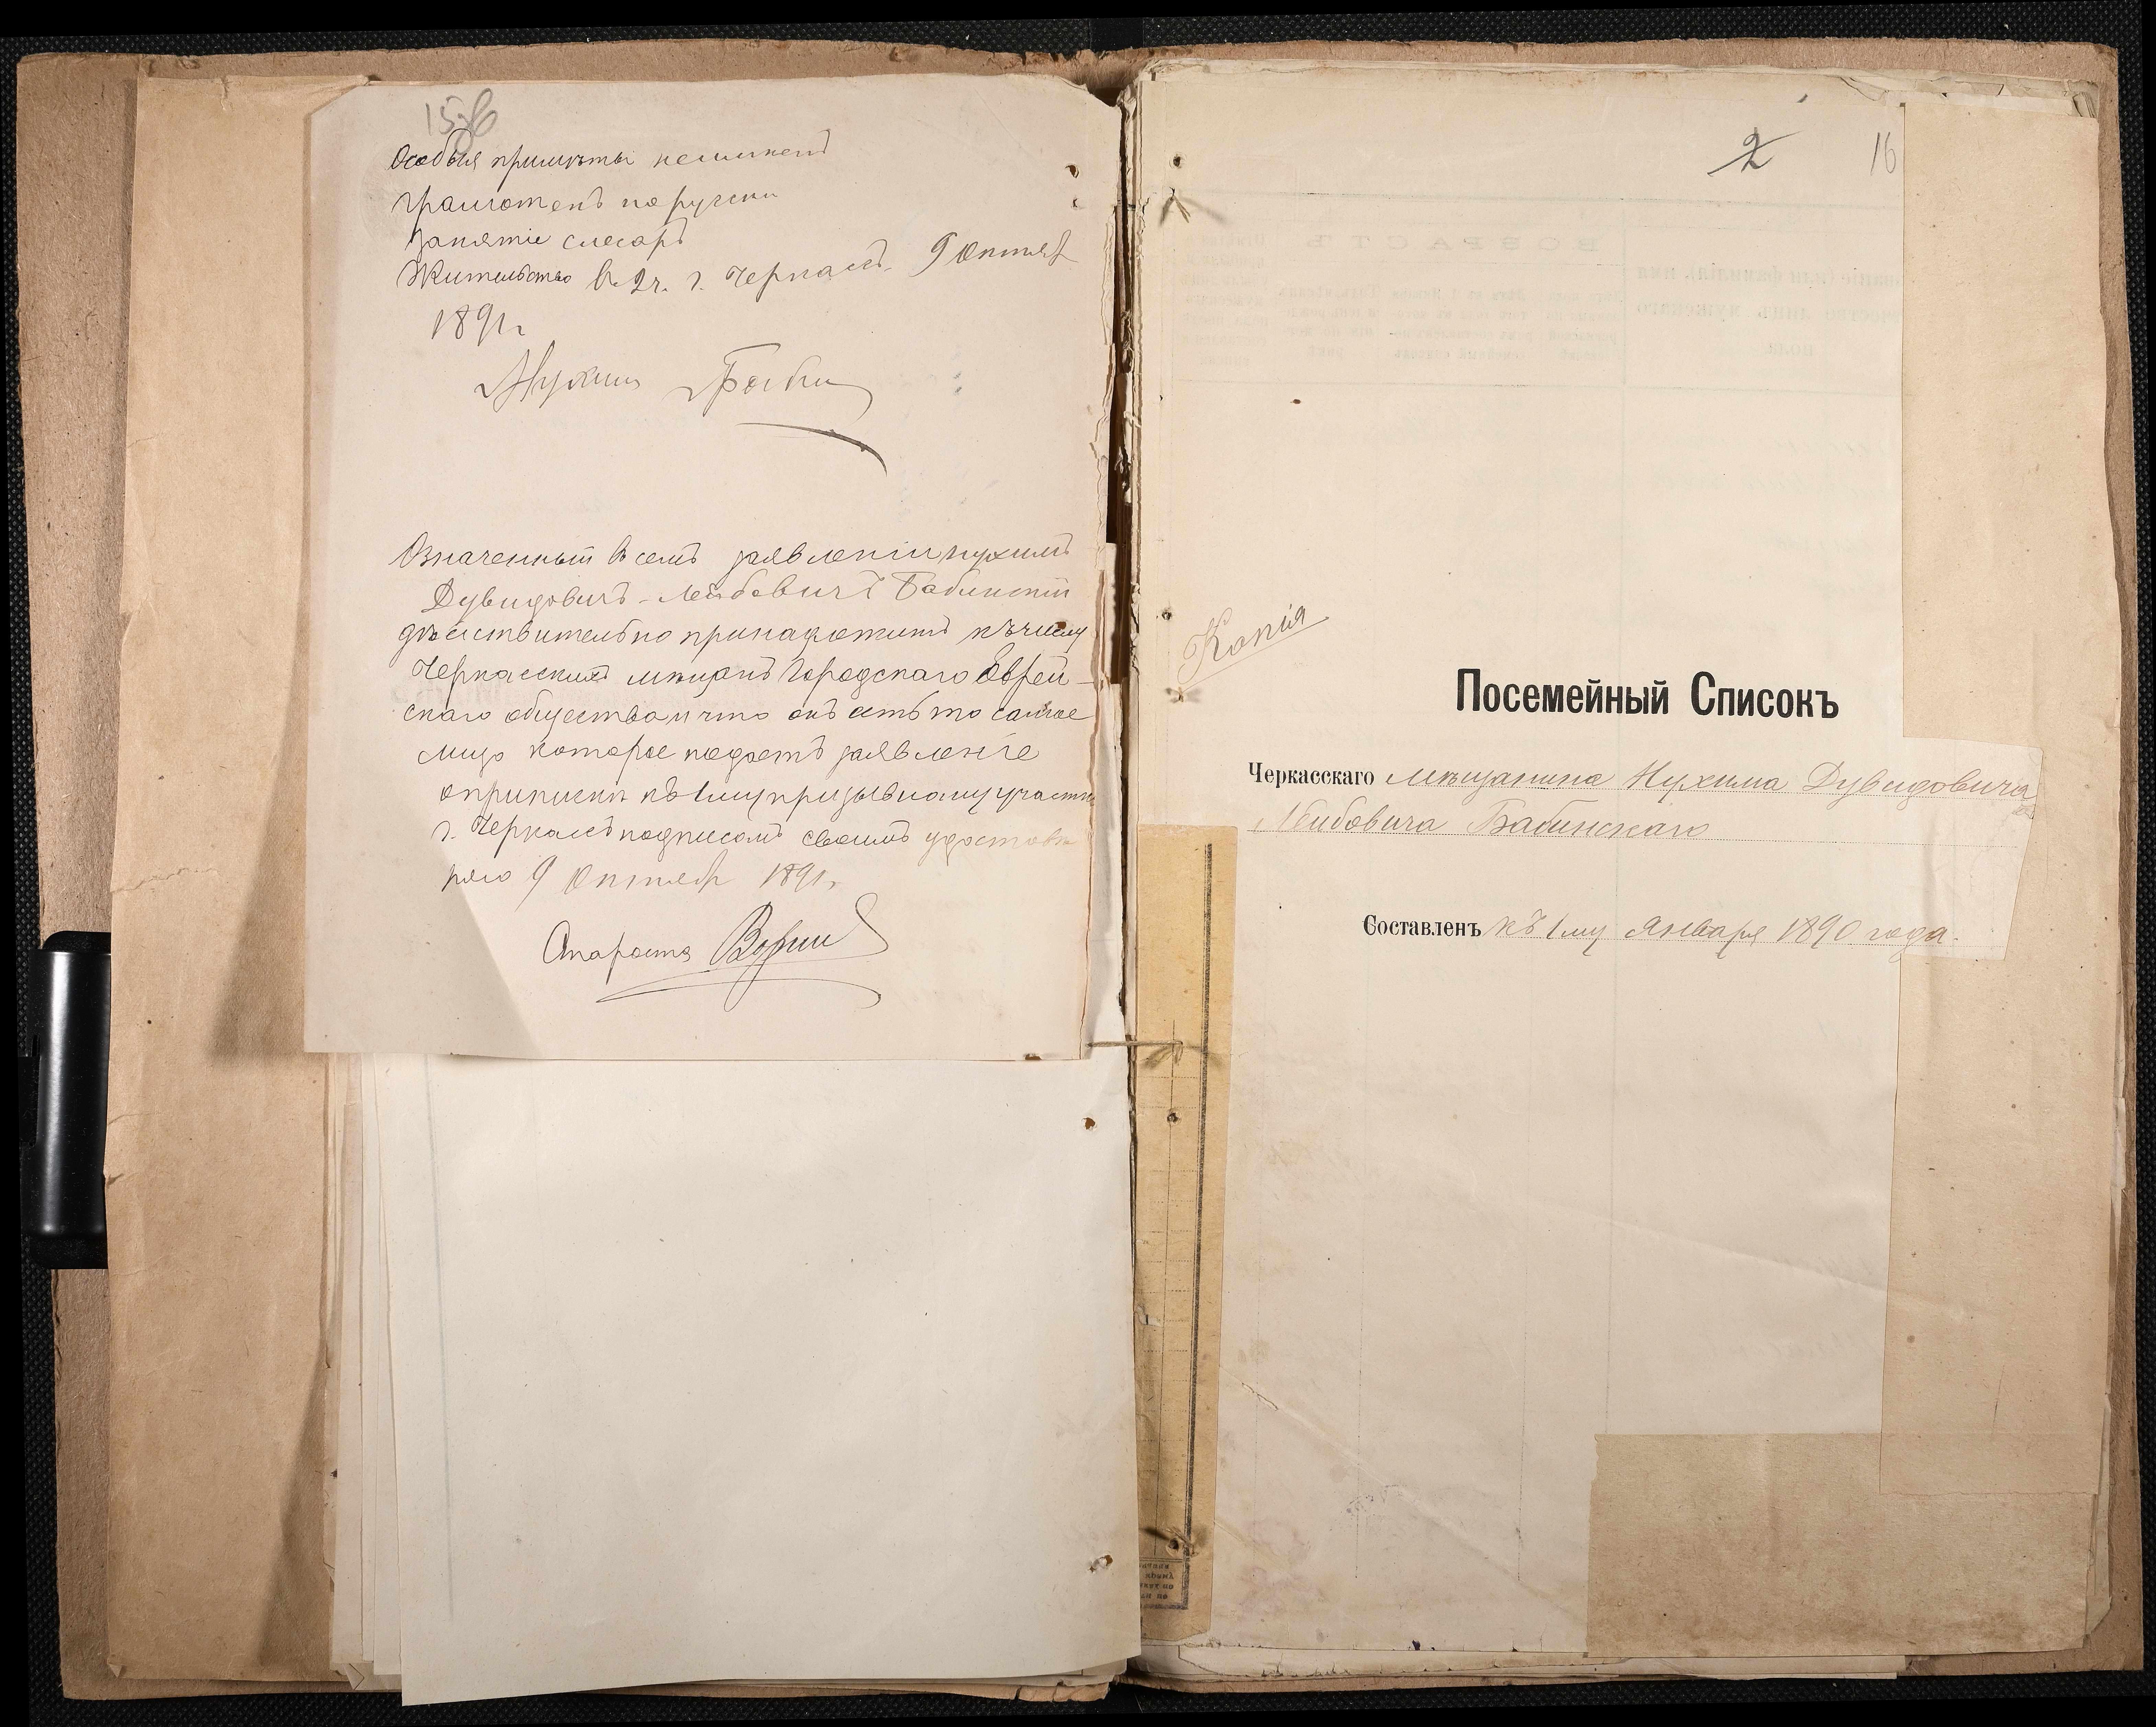 15об
Особыя примѣты неимѣетъ
грамотенъ по русски
занятіе слесарь
Жительство в. 2 ч. г. Черкассъ. 9 Октяб
1891 г
Нухим
Означенный в семъ заявленіи Нухимъ
Дувидовичъ-Лейбовичъ Бабинскій
дѣйствительно принадлежитъ къ числу
Черкасскихъ мѣщанъ Городскаго Еврей-
скаго общества и что онъ есть то самое
лицо которое подаетъ заявленіе
о припискѣ къ 1му призывному участку
г. Черкассъ подписомъ своимъ удостовѣ
ряю 9 Октября 1891 г.
Староста
2 16
Копія
Посемейный Списокъ
Черкасскаго мѣщанина Нухима Дувидовича
Лейбовича Бабинскаго
Составленъ къ 1му Января 1890 года.